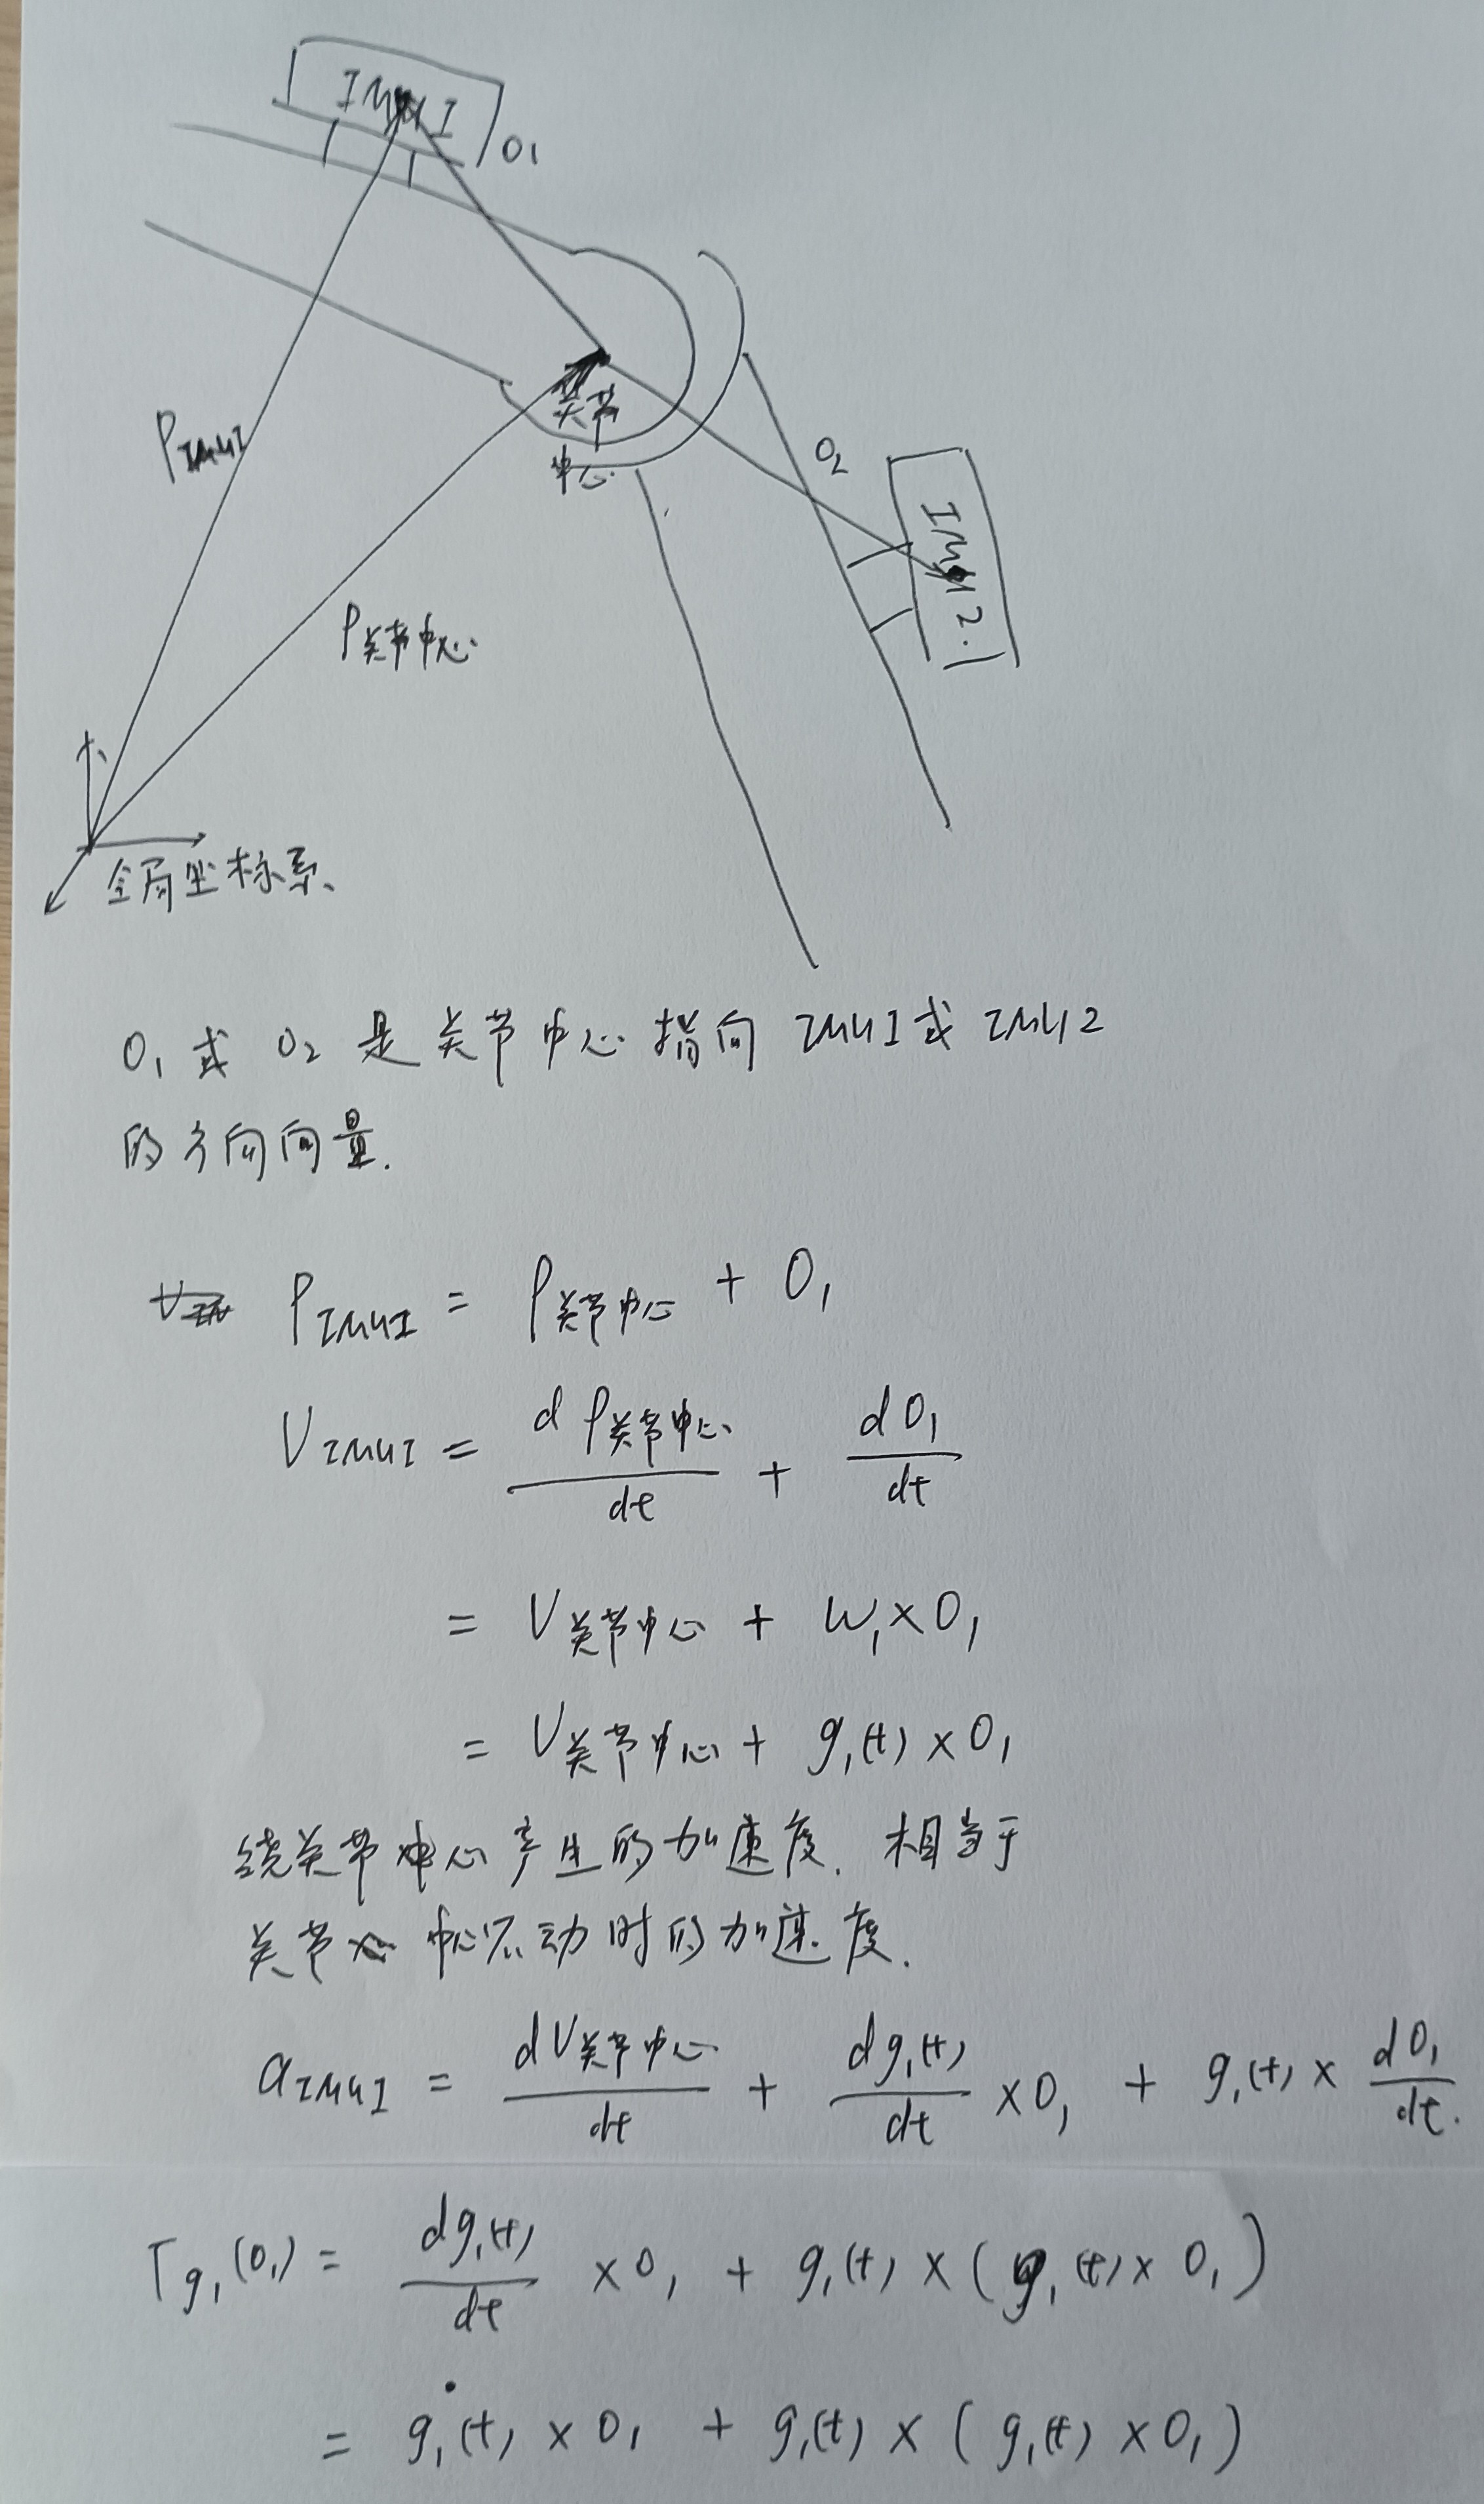 IMU1
O₁
P_IMU1
关节
中心
O₂
IMU2
P_关节中心
全局坐标系
O₁ 或 O₂ 是关节中心指向 IMU1 或 IMU2
的方向向量.
P_IMU1 = P_关节中心 + O₁
V_IMU1 = dP_关节中心/dt + dO₁/dt
= V_关节中心 + w₁×O₁
= V_关节中心 + g₁(t)×O₁
绕关节中心产生的加速度. 相当于
关节中心不动时的加速度.
a_IMU1 = dV_关节中心/dt + dg₁(t)/dt ×O₁ + g₁(t)× dO₁/dt.
Γg₁(O₁) = dg₁(t)/dt ×O₁ + g₁(t)×(g₁(t)×O₁)
= ġ₁(t)×O₁ + g₁(t)×(g₁(t)×O₁)